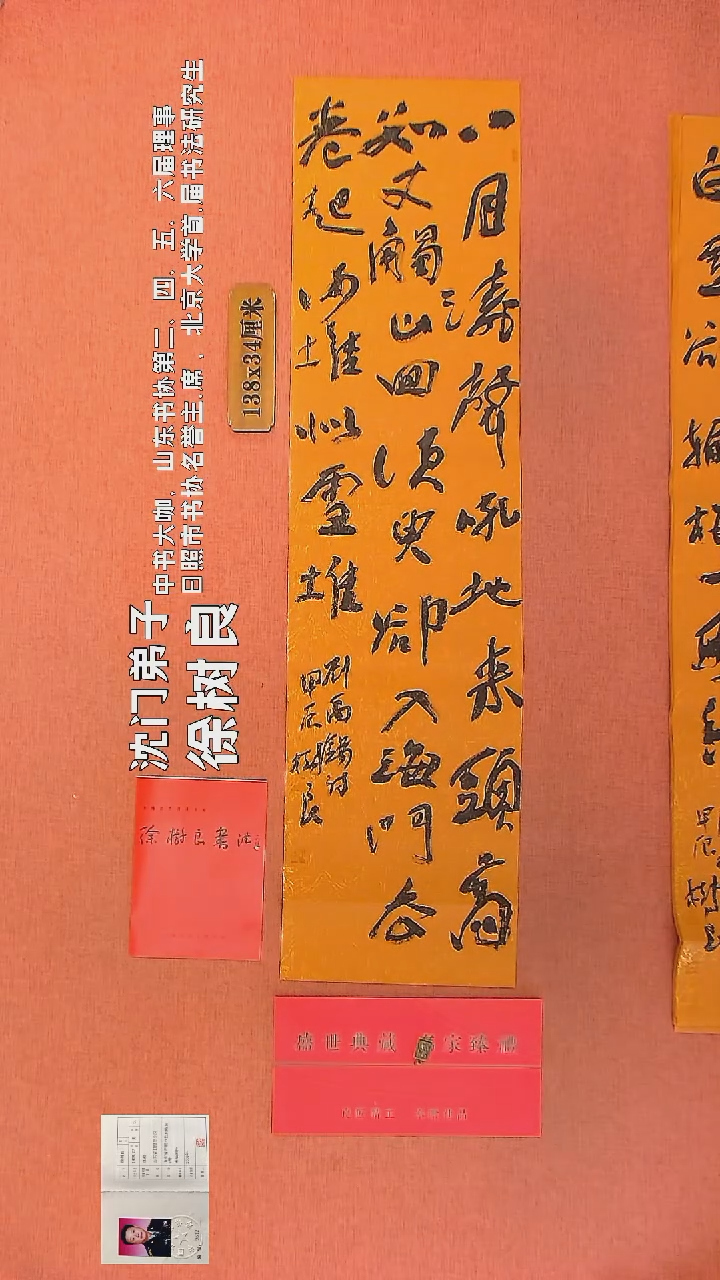 沈门弟子
徐树良
中书大咖，山东书协第二、四、五、六届理事
日照市书协名誉主席、北京大学首届书法研究生
138x34厘米
八月濤聲吼地来頭高
数丈觸山回須臾卻入海門去
卷起沙堆似雪堆
劉禹錫詩
甲辰樹良
徐樹良書法
盛世典藏 名家臻禮
甲辰